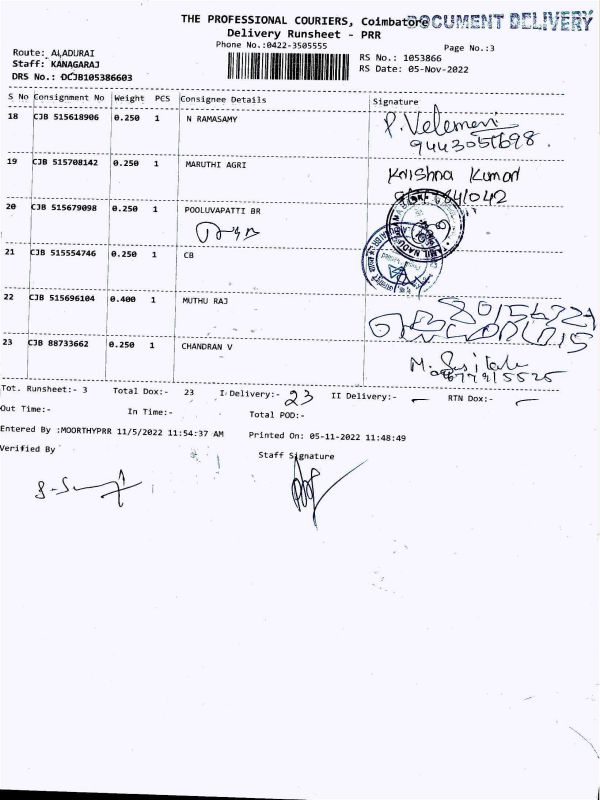 THE PROFESSIONAL COURIERS, Coimbatore DOCUMENT DELIVERY
Delivery Runsheet - PRR
Phone No.:0422-3505555
Page No.:3
Route: ALADURAI
RS No.: 1053866
Staff: KANAGARAJ
RS Date: 05-Nov-2022
DRS No.: DCJB105386603
S No Consignment No Weight PCS Consignee Details Signature
18 CJB 515618906 0.250 1 N RAMASAMY P. Velemani
19 CJB 515708142 0.250 1 MARUTHI AGRI Krishna Kumar
20 CJB 515679098 0.250 1 POOLUVAPATTI BR
21 CJB 515554746 0.250 1 CB
22 CJB 515696104 0.400 1 MUTHU RAJ
23 CJB 88733662 0.250 1 CHANDRAN V
Tot. Runsheet:- 3 Total Dox:- 23 I Delivery:- 23 II Delivery:- — RTN Dox:- —
Out Time:- In Time:- Total POD:-
Entered By :MOORTHYPRR 11/5/2022 11:54:37 AM Printed On: 05-11-2022 11:48:49
Verified By Staff Signature